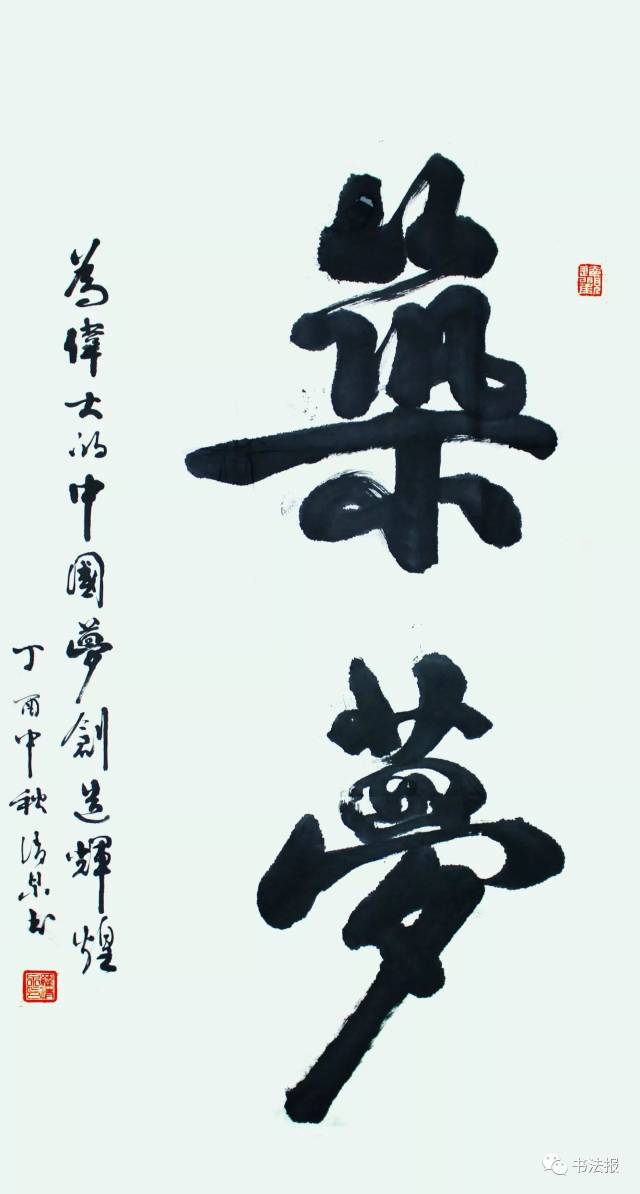 築夢
為偉大的中國夢創造輝煌
丁酉中秋清泉书
书法报